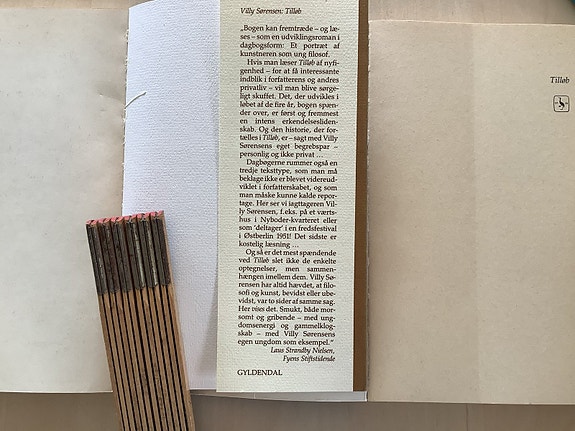 Villy Sørensen: Tilløb
„Bogen kan fremtræde – og læ-
ses – som en udviklingsroman i
dagbogsform: Et portræt af
kunstneren som ung filosof.
Hvis man læser Tilløb af nyfi-
genhed – for at få interessante
indblik i forfatterens og andres
privatliv – vil man blive sørge-
ligt skuffet. Det, der udvikles i
løbet af de fire år, bogen spæn-
der over, er først og fremmest
en intens erkendelsesliden-
skab. Og den historie, der for-
tælles i Tilløb, er – sagt med Villy
Sørensens eget begrebspar –
personlig og ikke privat ...
Dagbøgerne rummer også en
tredje teksttype, som man må
beklage ikke er blevet videreud-
viklet i forfatterskabet, og som
man måske kunne kalde repor-
tage. Her ser vi iagttageren Vil-
ly Sørensen, f.eks. på et værts-
hus i Nyboder-kvarteret eller
som 'deltager' i en fredsfestival
i Østberlin 1951! Det sidste er
kostelig læsning ...
Og så er det mest spændende
ved Tilløb slet ikke de enkelte
optegnelser, men sammen-
hængen imellem dem. Villy Sø-
rensen har altid hævdet, at filo-
sofi og kunst, bevidst eller ube-
vidst, var to sider af samme sag.
Her vises det. Smukt, både mor-
somt og gribende – med ung-
domsenergi og gammelklog-
skab – med Villy Sørensens
egen ungdom som eksempel.“
Laus Strandby Nielsen,
Fyens Stiftstidende
GYLDENDAL
Tilløb